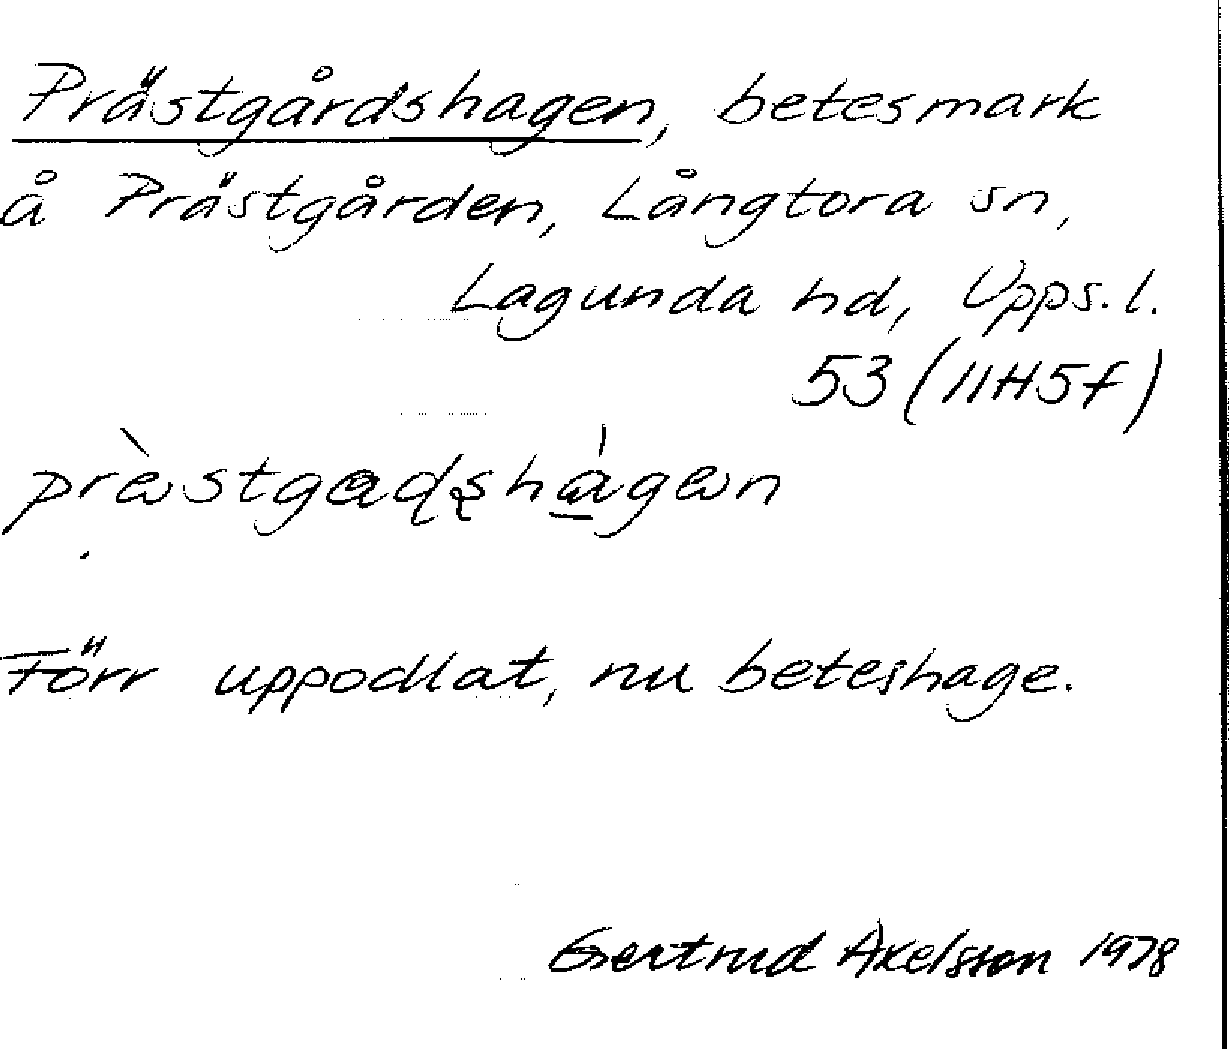 Prästgårdshagen, betesmark
å Prästgården, Långtora sn,
Lagunda hd, Upps. l.
53 (11H5f)
prὲstgɑɖʂhὰ̱gǝn
Förr uppodlat, nu beteshage.
Gertrud Axelsson 1978